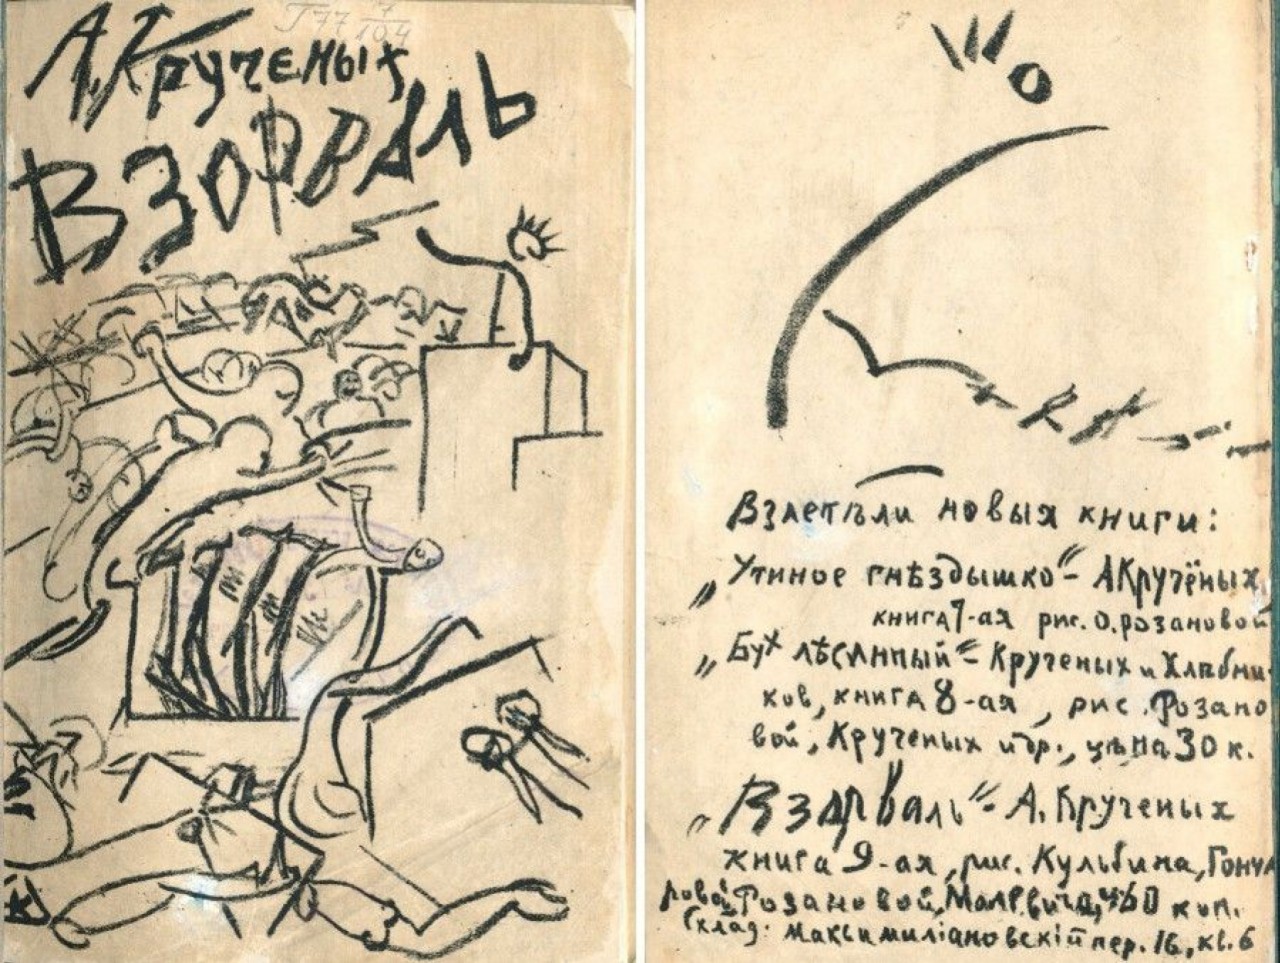 А. Крученых
ВЗОРВАЛЬ
Взлетѣли новыя книги:
„Утиное гнѣздышко"– А Кручёных
книга 7-ая рис. О. Розановой
„Бух лѣсинный"– Крученых и Хлебни-
ков, книга 8-ая, рис. Розано
вой, Крученых и др., цѣна 30 к.
„Взорваль"– А. Крученых
книга 9-ая, рис. Кульбина, Гонча
ровой, Розановой, Малевича, ц. 60 коп.
Склад: Максимилiановскiй пер. 16, кв. 6